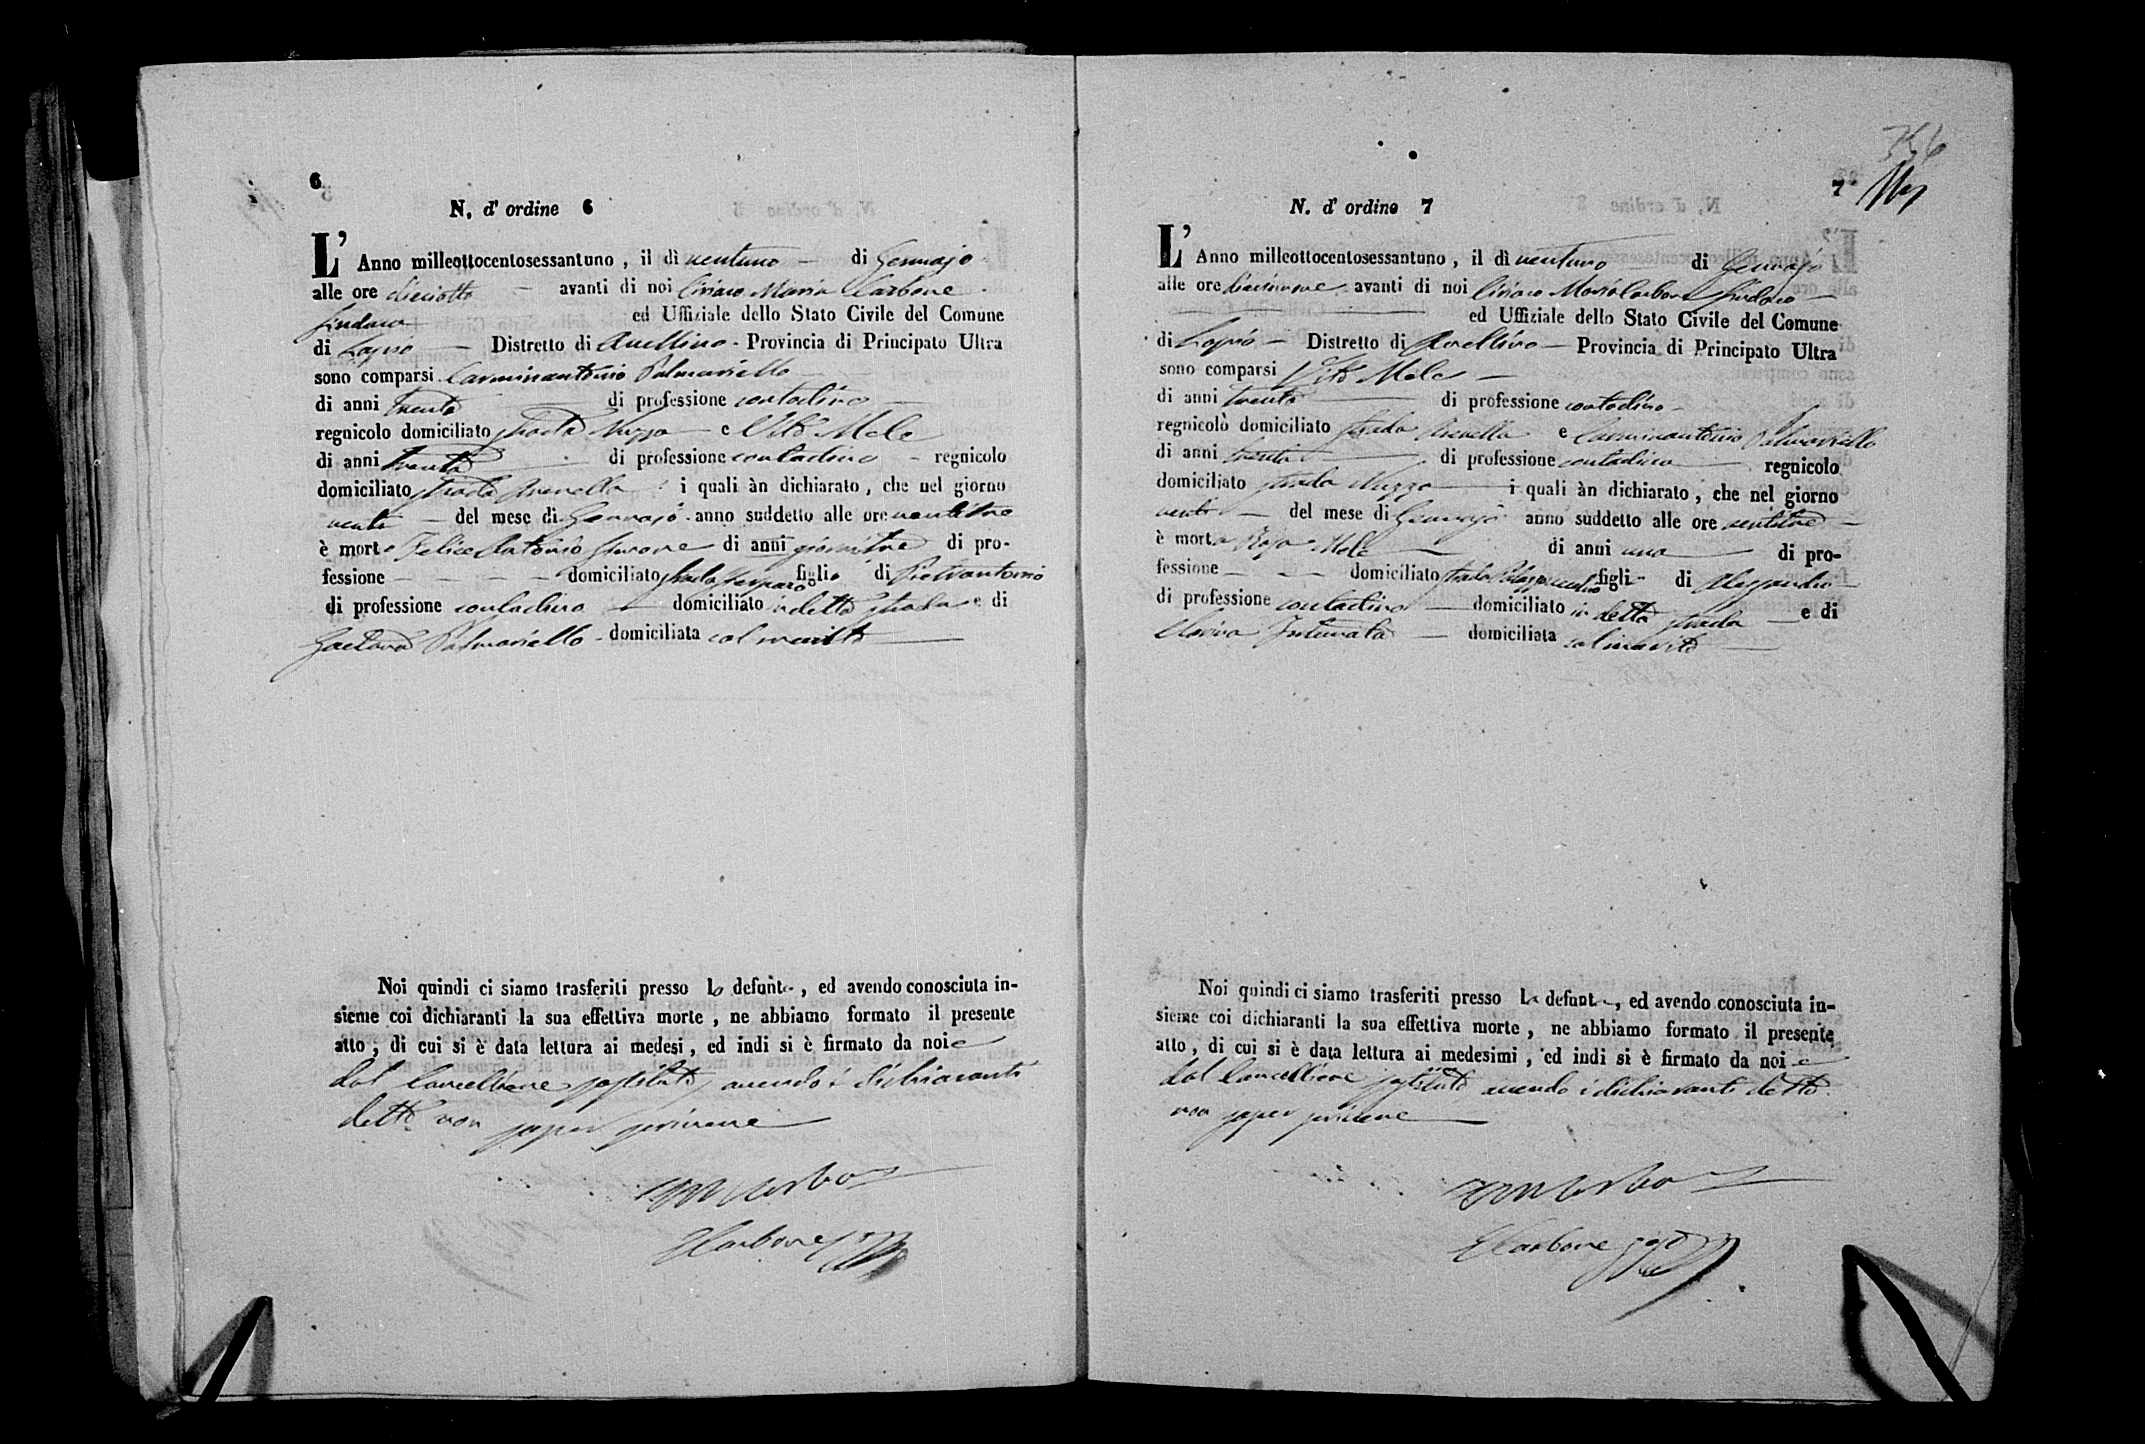 6
N. d' ordine 6
L' Anno milleottocentosessantuno, il dì ventuno di Gennajo
alle ore dieciotto avanti di noi Ciriaco Maria Carbone
Sindaco ed Uffiziale dello Stato Civile del Comune
di Lapio Distretto di Avellino Provincia di Principato Ultra
sono comparsi Carminantonio Palmariello
di anni trenta di professione contadino
regnicolo domiciliato strada Muzzo e Vito Mele
di anni trenta di professione contadino regnicolo
domiciliato strada Arenella i quali àn dichiarato, che nel giorno
venti del mese di Gennajo anno suddetto alle ore ventitre
è morto Felice Antonio di anni giorni tre di pro-
fessione domiciliato strada figlio di Pietrantonio
di professione contadino domiciliato in detta strada e di
Gaetana Palmariello domiciliata col marito
Noi quindi ci siamo trasferiti presso lo defunto, ed avendo conosciuta in-
sieme coi dichiaranti la sua effettiva morte, ne abbiamo formato il presente
atto, di cui si è data lettura ai medesi, ed indi si è firmato da noi e
dal Cancelliere sostituto, avendo i dichiaranti
detto non saper scrivere
Carbone
7
N. d' ordine 7
L' Anno milleottocentosessantuno, il dì ventuno di Gennajo
alle ore diecinove avanti di noi Ciriaco Maria Carbone Sindaco
ed Uffiziale dello Stato Civile del Comune
di Lapio Distretto di Avellino Provincia di Principato Ultra
sono comparsi Vito Mele
di anni trenta di professione contadino
regnicolo domiciliato strada Arenella e Carminantonio Palmariello
di anni trenta di professione contadino regnicolo
domiciliato strada Muzzo i quali àn dichiarato, che nel giorno
venti del mese di Gennajo anno suddetto alle ore ventitre
è morta Rosa Mele di anni uno di pro-
fessione domiciliato strada figli di Alessandro
di professione contadino domiciliato in detta strada e di
domiciliata col marito
Noi quindi ci siamo trasferiti presso la defunta, ed avendo conosciuta in-
sieme coi dichiaranti la sua effettiva morte, ne abbiamo formato il presente
atto, di cui si è data lettura ai medesimi, ed indi si è firmato da noi e
dal Cancelliere sostituto avendo i dichiaranti detto
non saper scrivere
Carbone